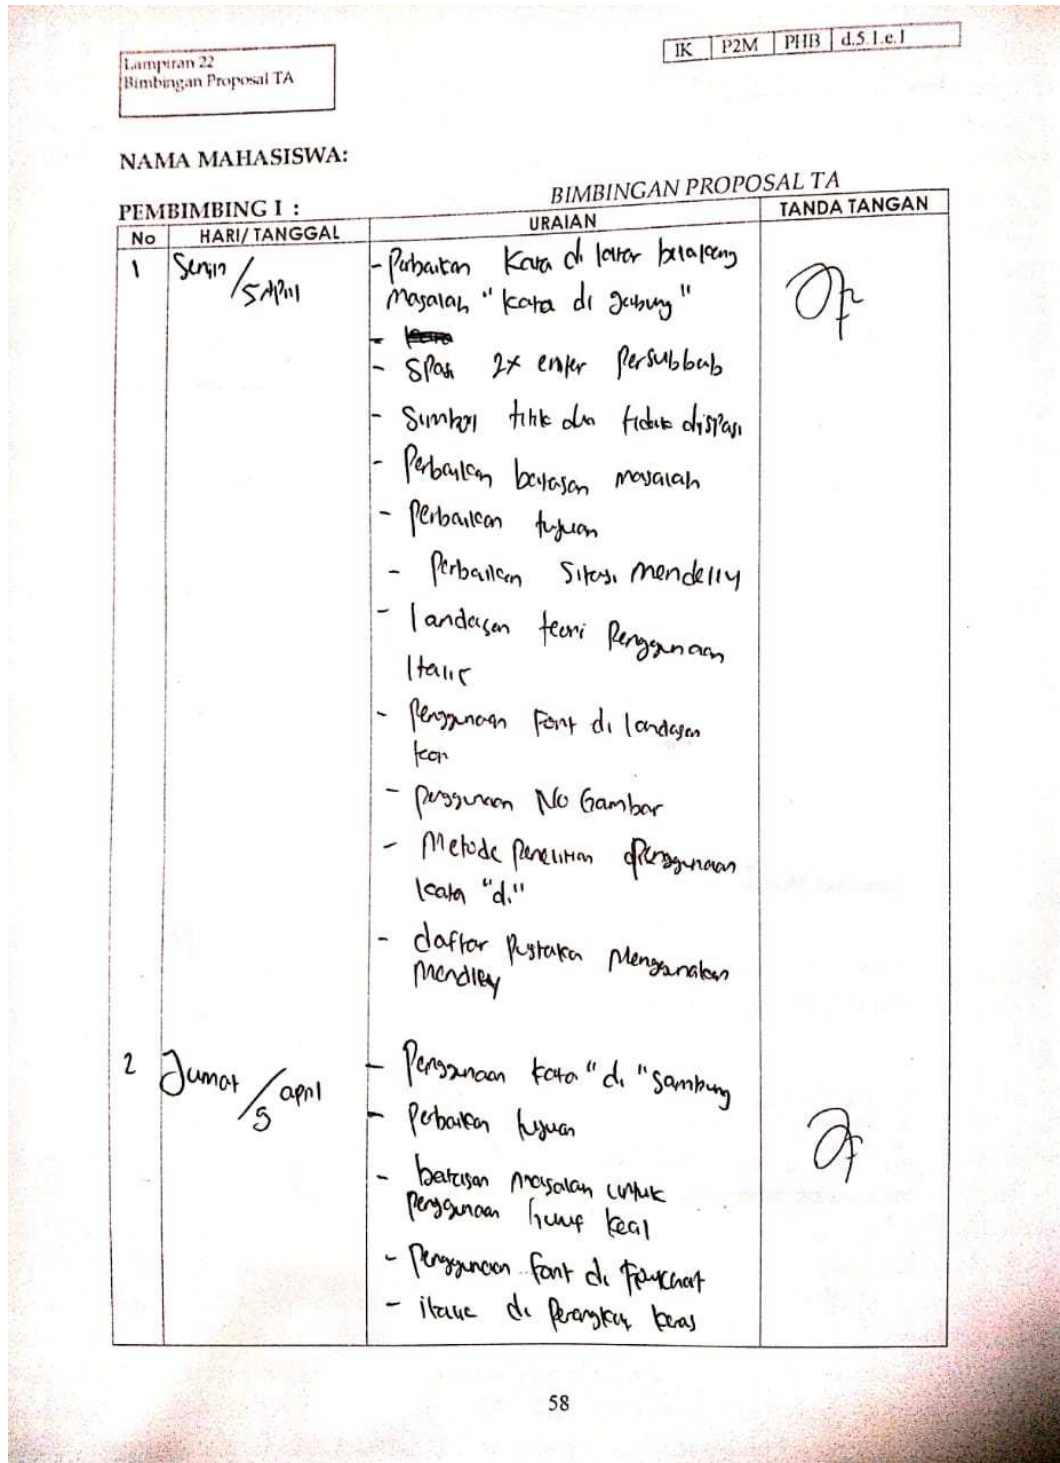 Lampiran 22
Bimbingan Proposal TA
IK P2M PHB d.5.1.e.1
NAMA MAHASISWA:
BIMBINGAN PROPOSAL TA
PEMBIMBING I :
No HARI/ TANGGAL URAIAN TANDA TANGAN
1 Senin / 5 April - Perbaikan Kata di latar belakang
Masalah " Kata di gabung "
-
- Spasi 2x enter Persubbab
- Simbol titik dua tidak dispasi
- Perbaikan batasan masalah
- Perbaikan tujuan
- Perbaikan Sitasi Mendelly
- landasan teori Penggunaan
Italic
- Penggunaan Font di landasan
teori
- penggunaan No Gambar
- Metode Penelitian Penggunaan
kata "di"
- daftar Pustaka Menggunakan
Mendley
2 Jumat / 9 april - Penggunaan kata "di" sambung
- Perbaikan tujuan
- batasan masalah untuk
penggunaan huruf kecil
- Penggunaan font di flowchart
- italic di Perangkat keras
58